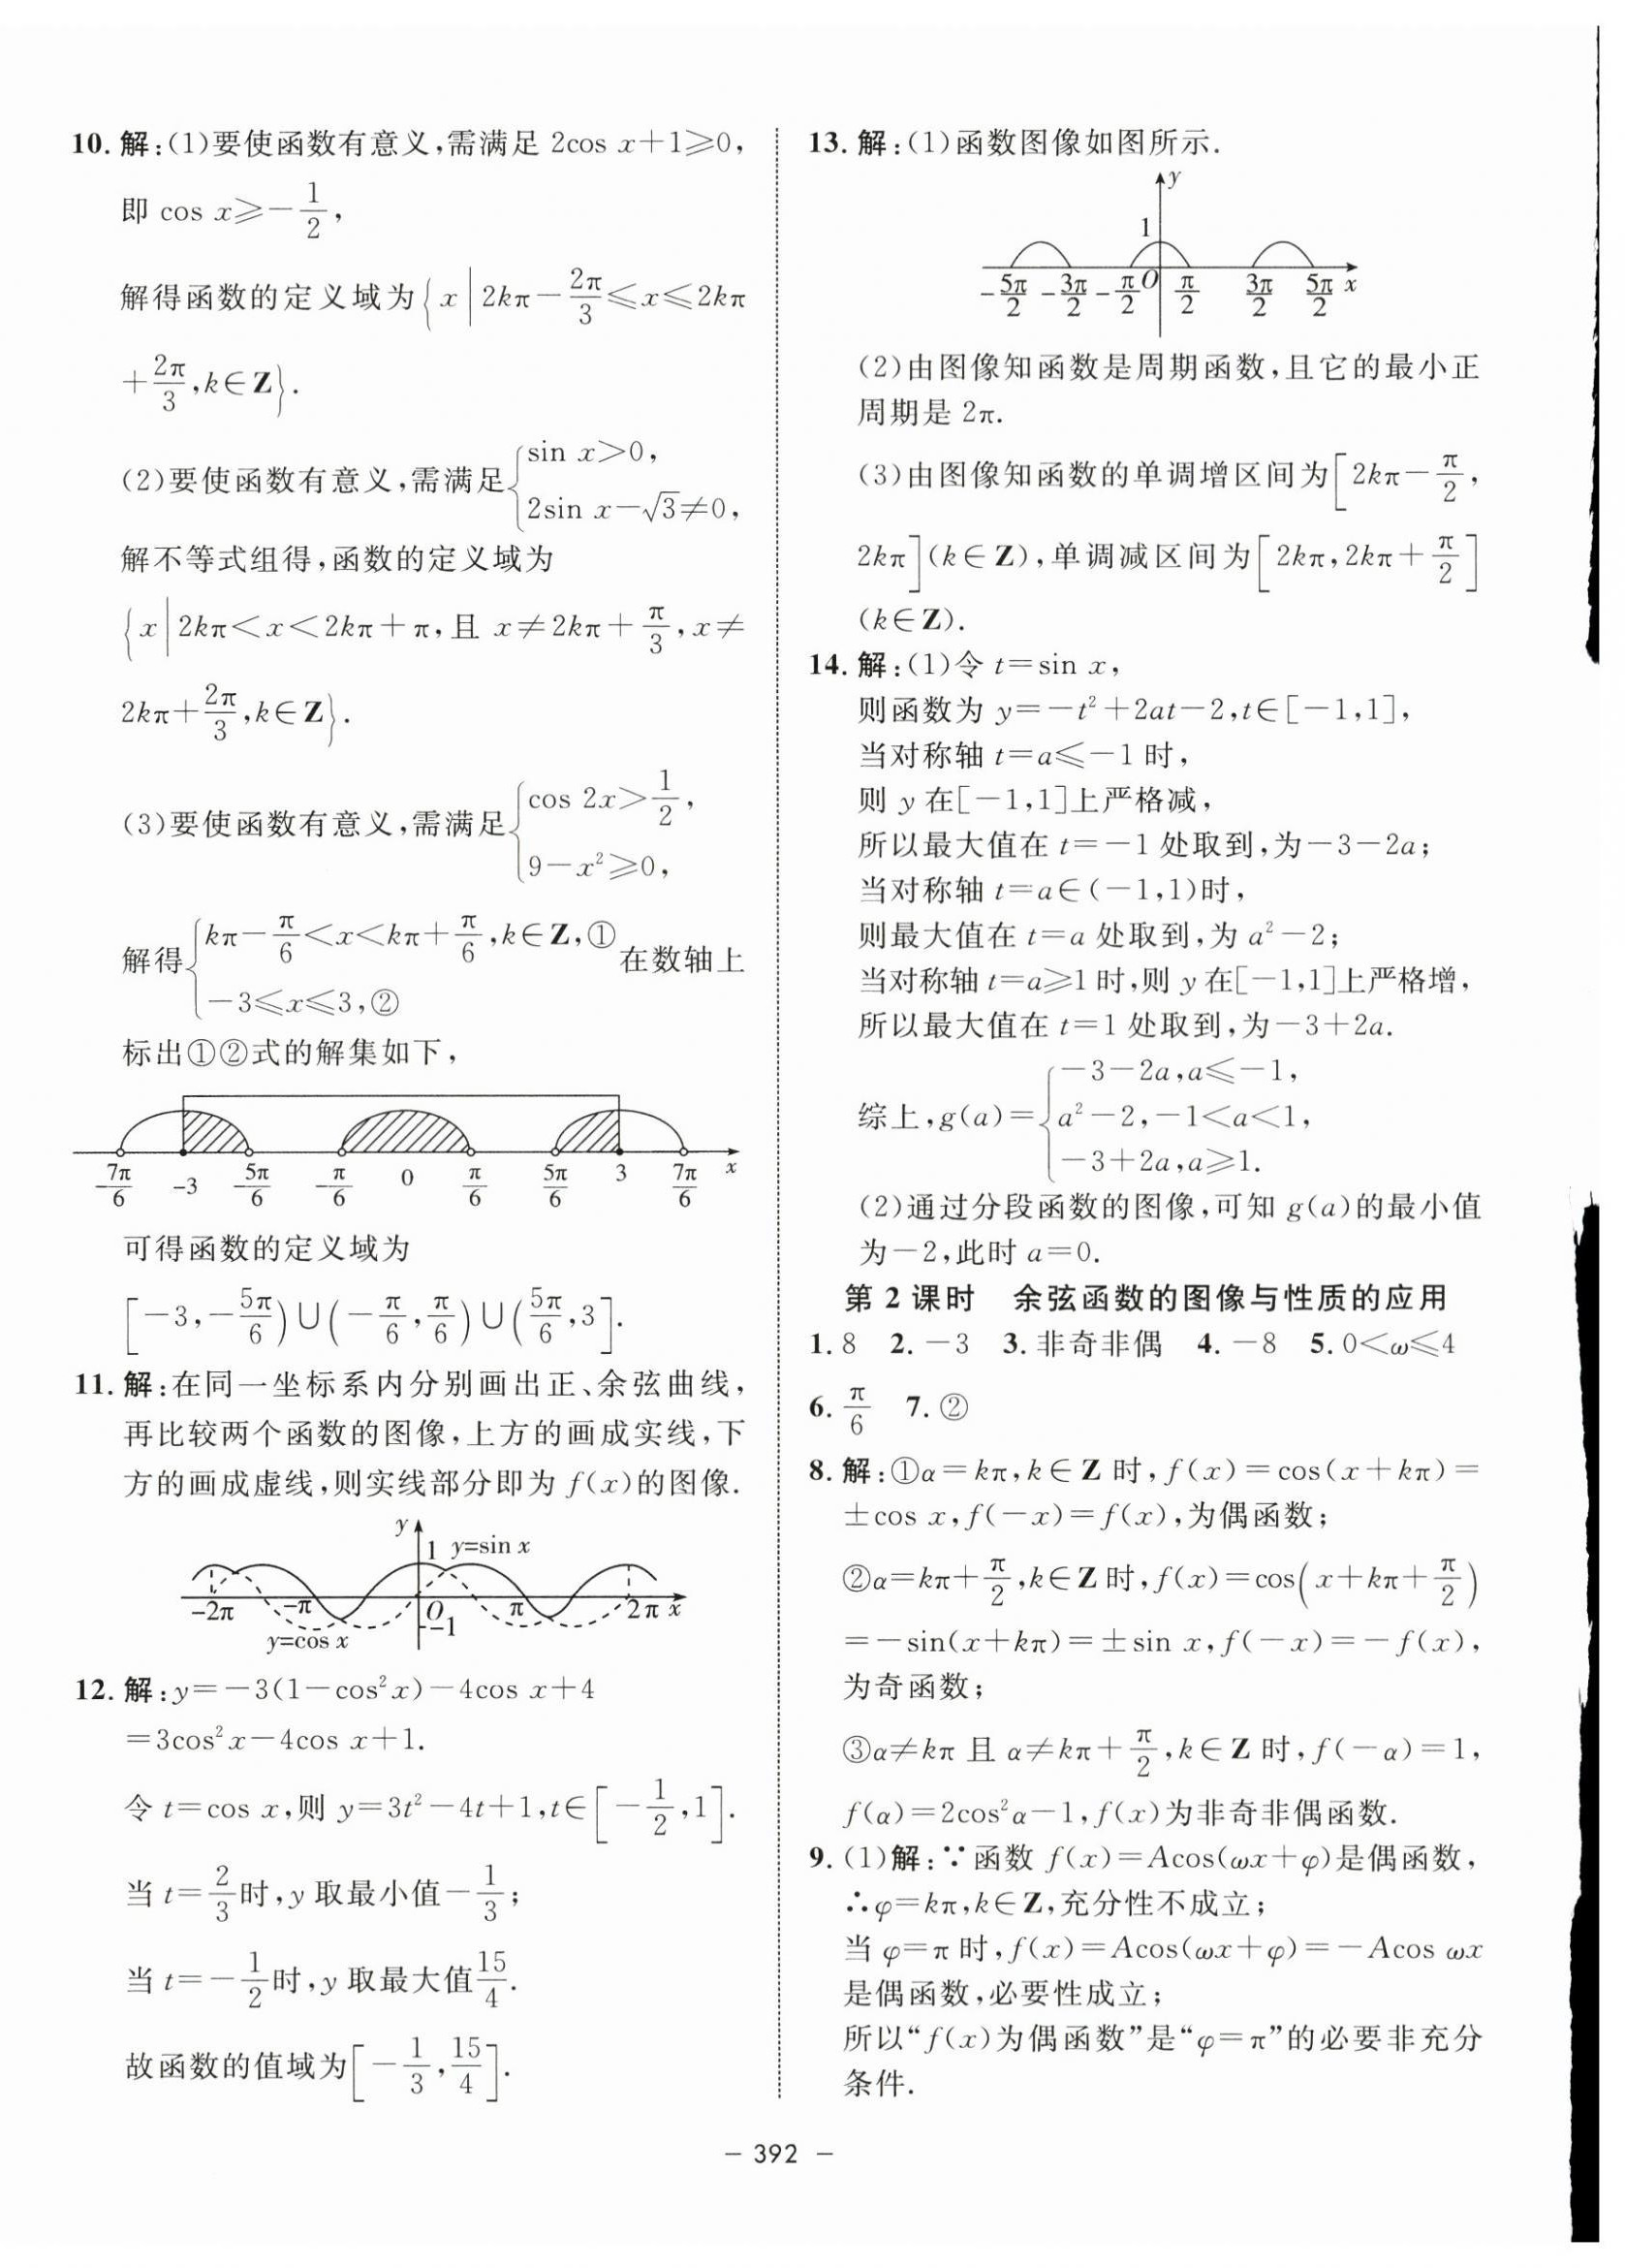 10. 解:(1)要使函数有意义,需满足 2cos x+1⩾0,
即 cos x⩾-1/2,
解得函数的定义域为{x|2kπ-2π/3⩽x⩽2kπ
+2π/3,k∈Z}.
(2)要使函数有意义,需满足{sin x>0,
2sin x-√3≠0,
解不等式组得,函数的定义域为
{x|2kπ<x<2kπ+π,且 x≠2kπ+π/3,x≠
2kπ+2π/3,k∈Z}.
(3)要使函数有意义,需满足{cos 2x>1/2,
9-x²⩾0,
解得{kπ-π/6<x<kπ+π/6,k∈Z,①
-3⩽x⩽3,② 在数轴上
标出①②式的解集如下,
-7π/6 -3 -5π/6 -π/6 0 π/6 5π/6 3 7π/6 x
可得函数的定义域为
[-3,-5π/6)∪(-π/6,π/6)∪(5π/6,3].
11. 解:在同一坐标系内分别画出正、余弦曲线,
再比较两个函数的图像,上方的画成实线,下
方的画成虚线,则实线部分即为 f(x)的图像.
y
1 y=sin x
-2π -π O π 2π x
-1
y=cos x
12. 解:y=-3(1-cos²x)-4cos x+4
=3cos²x-4cos x+1.
令 t=cos x,则 y=3t²-4t+1,t∈[-1/2,1].
当 t=2/3时,y 取最小值-1/3;
当 t=-1/2时,y 取最大值15/4.
故函数的值域为[-1/3,15/4].
13. 解:(1)函数图像如图所示.
y
1
-5π/2 -3π/2 -π/2 O π/2 3π/2 5π/2 x
(2)由图像知函数是周期函数,且它的最小正
周期是 2π.
(3)由图像知函数的单调增区间为[2kπ-π/2,
2kπ](k∈Z),单调减区间为[2kπ,2kπ+π/2]
(k∈Z).
14. 解:(1)令 t=sin x,
则函数为 y=-t²+2at-2,t∈[-1,1],
当对称轴 t=a⩽-1 时,
则 y 在[-1,1]上严格减,
所以最大值在 t=-1 处取到,为-3-2a;
当对称轴 t=a∈(-1,1)时,
则最大值在 t=a 处取到,为 a²-2;
当对称轴 t=a⩾1 时,则 y 在[-1,1]上严格增,
所以最大值在 t=1 处取到,为-3+2a.
综上,g(a)={-3-2a,a⩽-1,
a²-2,-1<a<1,
-3+2a,a⩾1.
(2)通过分段函数的图像,可知 g(a)的最小值
为-2,此时 a=0.
第 2 课时 余弦函数的图像与性质的应用
1. 8 2. -3 3. 非奇非偶 4. -8 5. 0<ω⩽4
6. π/6 7. ②
8. 解:①α=kπ,k∈Z 时,f(x)=cos(x+kπ)=
±cos x,f(-x)=f(x),为偶函数;
②α=kπ+π/2,k∈Z 时,f(x)=cos(x+kπ+π/2)
=-sin(x+kπ)=±sin x,f(-x)=-f(x),
为奇函数;
③α≠kπ 且 α≠kπ+π/2,k∈Z 时,f(-α)=1,
f(α)=2cos²α-1,f(x)为非奇非偶函数.
9. (1)解:∵函数 f(x)=Acos(ωx+φ)是偶函数,
∴φ=kπ,k∈Z,充分性不成立;
当 φ=π 时,f(x)=Acos(ωx+φ)=-Acos ωx
是偶函数,必要性成立;
所以“f(x)为偶函数”是“φ=π”的必要非充分
条件.
- 392 -